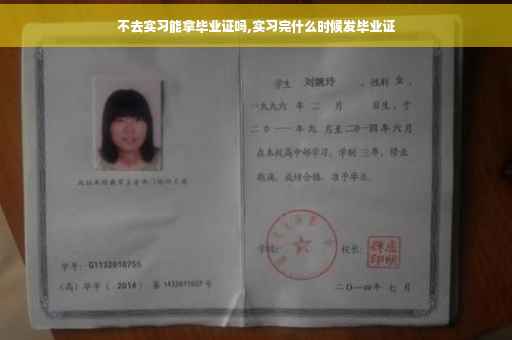 不去实习能拿毕业证吗,实习完什么时候发毕业证
学生 刘婉玲 ，性别 女 ，
一九九六 年 二 月 日生，于
二〇一一 年 九 月至二〇一四 年 六 月
在本校高中部学习，学制 三 年，修业
期满，成绩合格，准予毕业。
学号： G1132010755
学校： 校长：
(高) 毕字 ( 2014 ) 第 1432011027 号
二〇一四年 七 月